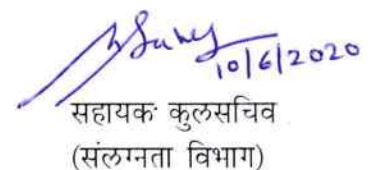 10/6/2020
सहायक कुलसचिव
(संलग्नता विभाग)